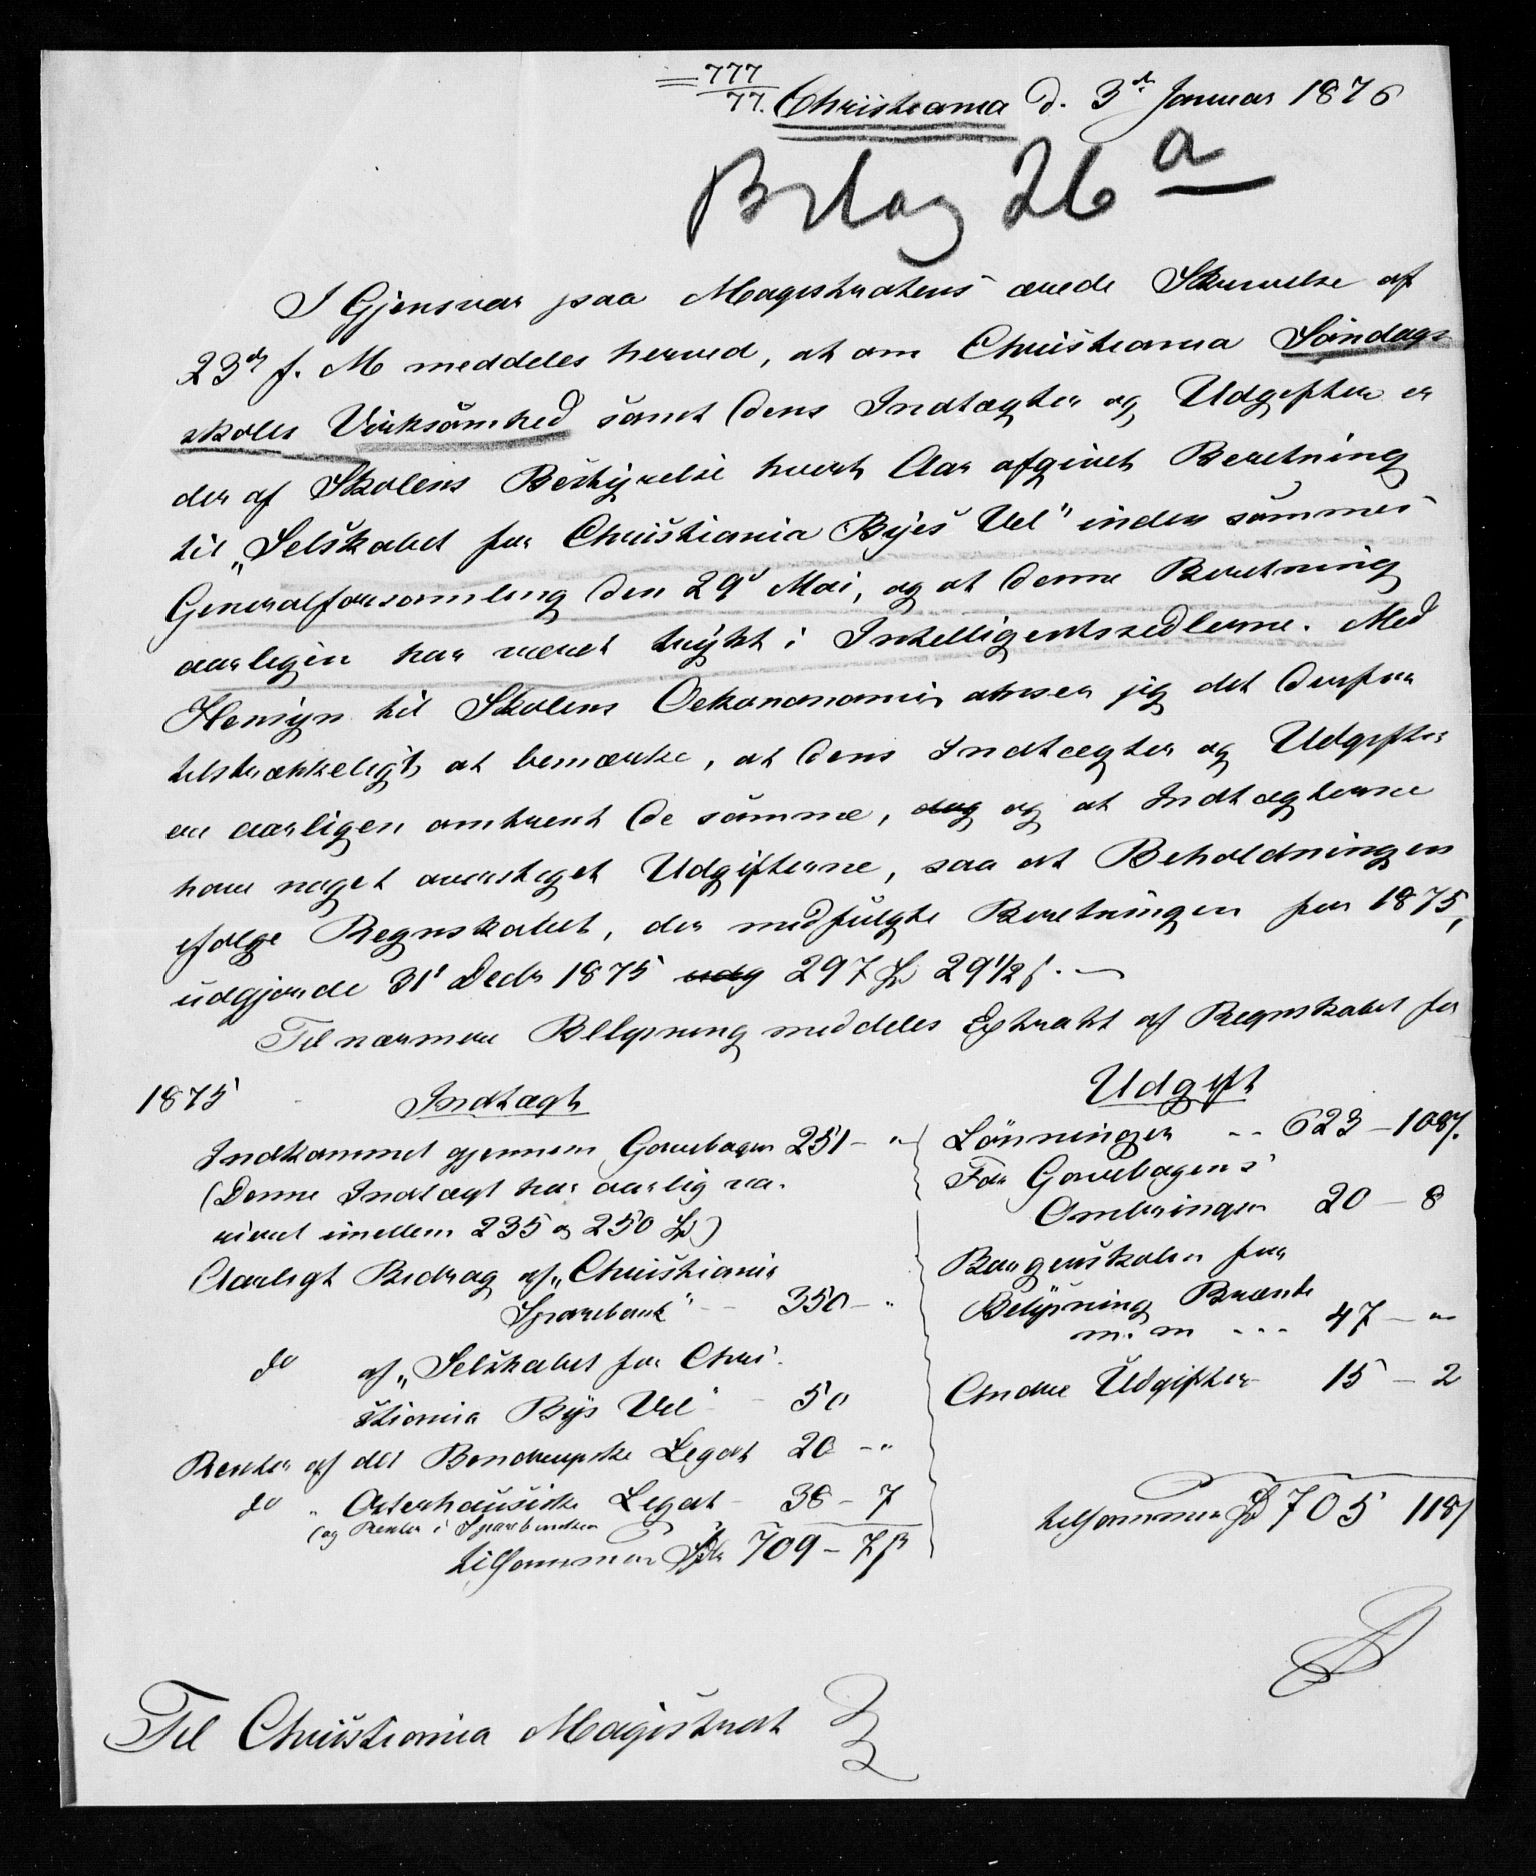 777
77. Christiania d. 3d. Januar 1876
Bilag 26 a
I Gjensvar paa Magistratens ærede Skrivelse af
23d f. M meddeles herved, at om Christiania Söndags-
skoles Virksomhed samt dens Indtægter og Udgifter er
der af Skolens Bestyrelse hvert Aar afgivet Beretning
til „Selskabet for Christiania Byes Vel" inden sammes
Generalforsamling den 29d Mai, og at denne Beretning
aarligen har været trykt i Intelligentssedlerne. Med
Hensyn til Skolens Oekonomomie anser jeg det derfor
tilstrækkeligt at bemærke, at dens Indtægter og Udgifter
ere aarligen omtrent de samme, dog og at Indtægterne
have noget oversteget Udgifterne, saa at Beholdningen
ifølge Regnskabet, der medfulgte Beretningen for 1875,
udgjorde 31t Decbr 1875 udg 297 Sp 29 1/2 ß. —
Til nærmere Bllysning meddeles Extrakt af Regnskabet for
1875 Indtægt
Indkommet gjennem Gavebogen 251 — "
(Denne Indtægt har aarlig va-
rieret imellem 235 og 250 Sp)
Aarligt Bidrag af „Christiania
Sparebank" — 350 — "
do af „Selskabet for Chri-
stiania Bys Vel" — 50
Renter af det Bendeupske Legat 20 — "
do " Osterhausiske Legat — 38 — 7
(og Renter i Sparebanken
tilsammen Spdlr 709 — 7 ß
Udgift
Lønninger -- 623 — 108 ß.
For Gavebogens
Ombringen 20 — 8
Borgerskolen for
Belysning Brænde
m. m --- 47 — "
Andre Udgifter 15 — 2
tilsammen Sp 705 118 ß
Til Christiania Magistrat